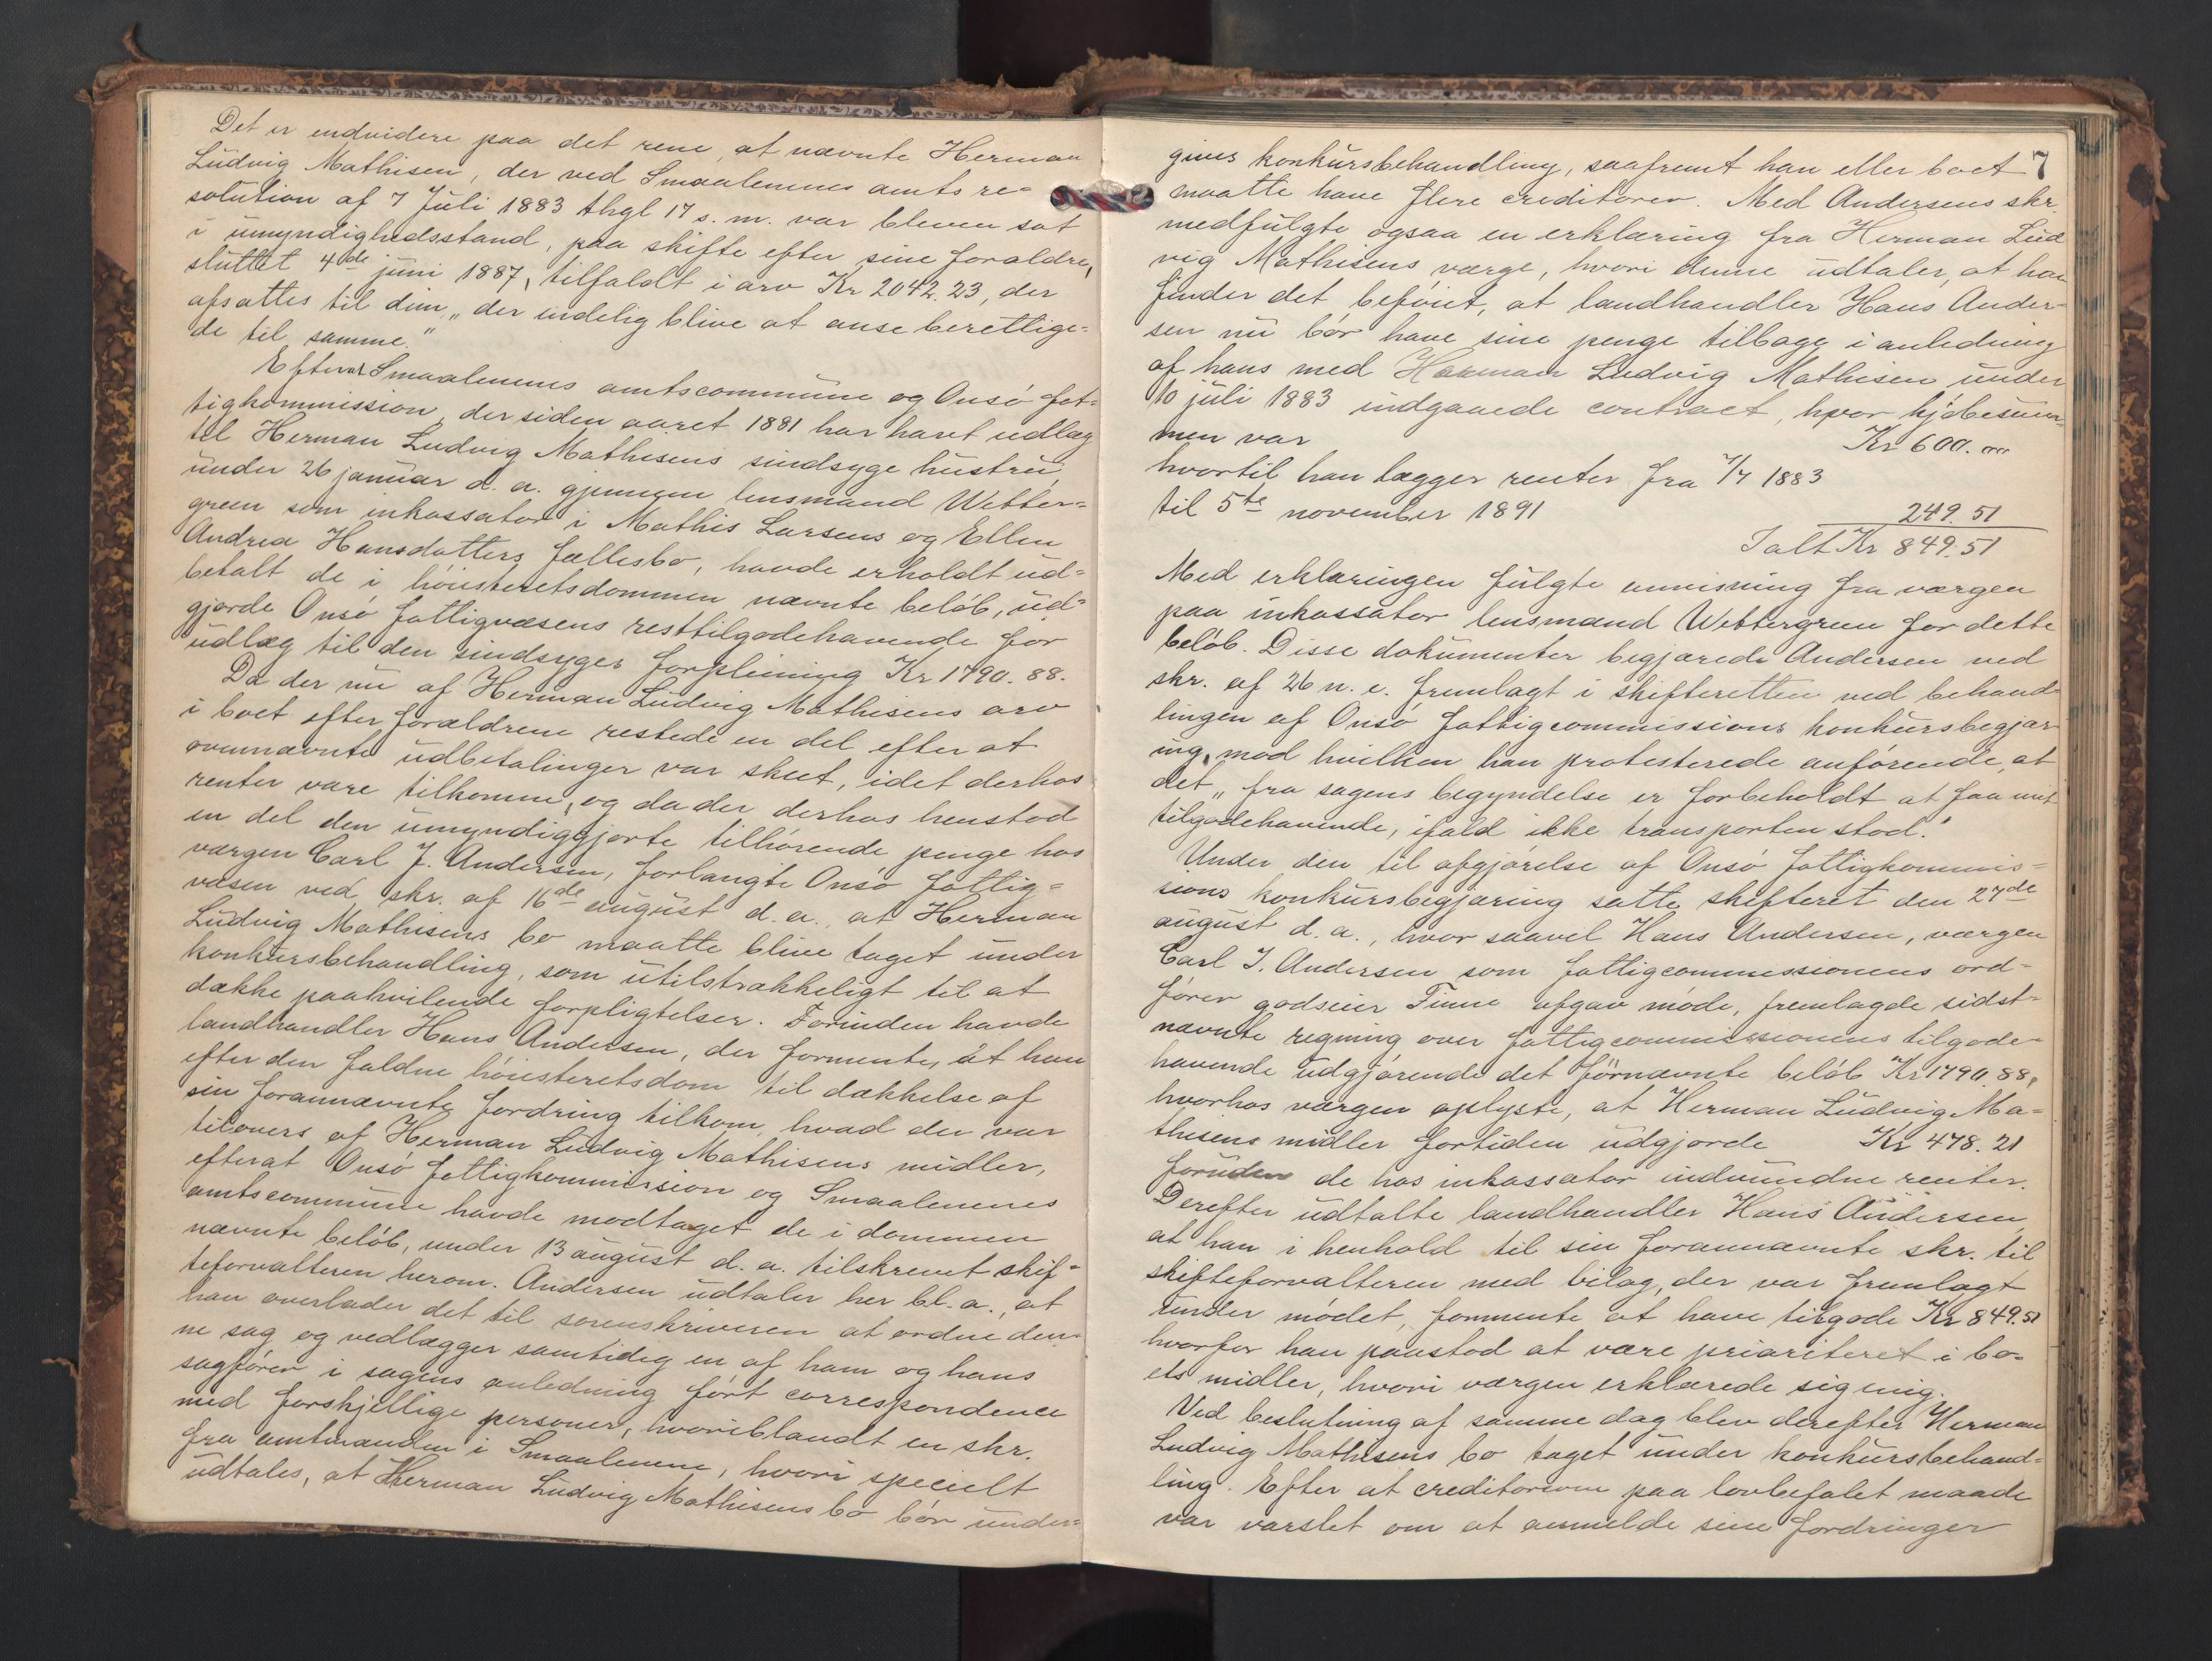 Det er endvidere paa det rene, at nævnte Herman
Ludvig Mathisen, der ved Smaalenenes amts re=
solution af 7 Juli 1883 thgl 17 s. m. var bleven sat
i umyndighedsstand, paa skifte efter sine forældre,
sluttet 4de juni 1887, tilfaldt i arv Kr 2042.23, der
afsattes til dem „der endelig blive at anse berettige=
de til samme."
Efterat Smaalenenes amtscommune og Onsö fat=
tigkommission, der siden aaret 1881 har havt udlæg
til Herman Ludvig Mathisens sindsyge hustru,
under 26 januar d. a. gjennem lensmand Wetter=
green som inkassator i Mathis Larsens og Ellen
Andrea Hansdatters fællesbo, havde erholdt ud=
betalt de i höiesteretsdommen nævnte belöb, ud=
gjorde Onsö fattigvæsens resttilgodehavende for
udlæg til den sindsyges forpleining Kr 1790. 88.
Da der nu af Herman Ludvig Mathisens arv
i boet efter forældrene restede en del efter at
ovennævnte udbetalinger var skeet, idet derhos
renter vare tilkomne, og da der derhos henstod
en del den umyndiggjorte tilhörende penge hos
værgen Carl J. Andersen, forlangte Onsö fattig=
væsen ved skr. af 16de august d. a., at Herman
Ludvig Mathisens bo maatte blive taget under
konkursbehandling, som utilstrækkeligt til at
dække paahvilende forpligtelser. Forinden havde
landhandler Hans Andersen, der formente, at han
efter den faldne höiesteretsdom til dækkelse af
sin forannævnte fordring tilkom, hvad der var
tilovers af Herman Ludvig Mathisens midler,
efterat Onsö fattigkommission og Smaalenenes
amtscommune havde modtaget de i dommen
nævnte belöb, under 13 august d. a. tilskrevet skif=
teforvalteren herom. Andersen udtaler her bl. a., at
han overlader det til sorenskriveren at ordne den=
ne sag og vedlægger samtidig en af ham og hans
sagförer i sagens anledning fört correspondence
med forskjellige personer, hvoriblandt en skr.
fra amtmanden i Smaalenene, hvori specielt
udtales, at Herman Ludvig Mathisens bo bör under=
7
gives konkursbehandling, saafremt han eller boet
maatte have flere creditorer. Med Andersens skr.
medfulgte ogsaa en erklæring fra Herman Lud
vig Mathisens værge, hvori denne udtaler, at han
finder det beföiet, at landhandler Hans Ander=
sen nu bör have sine penge tilbage i anledning
af hans med Herman Ludvig Mathisen under
10 juli 1883 indgaaede contract, hvor kjöbesum=
men var Kr 600. 00
hvortil han lægger renter fra 7/7 1883
til 5te november 1891 249. 51
Ialt Kr 849. 51
Med erklæringen fulgte anvisning fra værgen
paa inkassator lensmand Wettergreen for dette
belöb. Disse dokumenter begjærede Andersen ved
skr. af 26 n. e. fremlagt i skifteretten ved behand=
lingen af Onsö fattigcommissions konkursbegjær
ing, mod hvilken han protesterede anförende, at
det „fra sagens begyndelse er forbeholdt at faa mit
tilgodehavende, ifald ikke transporten stod."
Under den til afgjörelse af Onsö fattigkommis=
sions konkursbegjæring satte skifteret den 27de
august d. a., hvor saavel Hans Andersen, værgen
Carl J. Andersen som fattigcommissionens ord=
förer godseier Finne afgav möde, fremlagde sidst=
nævnte regning over fattigcommissionens tilgode=
havende udgjörende det förnævnte belöb Kr 1790. 88,
hvorhos værgen oplyste, at Herman Ludvig Ma=
thisens midler fortiden udgjorde Kr 478. 21
foruden de hos inkassator indvundne renter.
Derefter udtalte landhandler Hans Andersen,
at han i henhold til sin forannævnte skr. til
skifteforvalteren med bilag, der var fremlagt
under mödet, formente at have tilgode Kr 849. 51
hvorfor han paastod at være prioriteret i bo=
ets midler, hvori værgen erklærede sig enig.
Ved beslutning af samme dag blev derefter Herman
Ludvig Mathisens bo taget under konkursbehand=
ling. Efter at creditorerne paa lovbefalet maade
var varslet om at anmelde sine fordringer